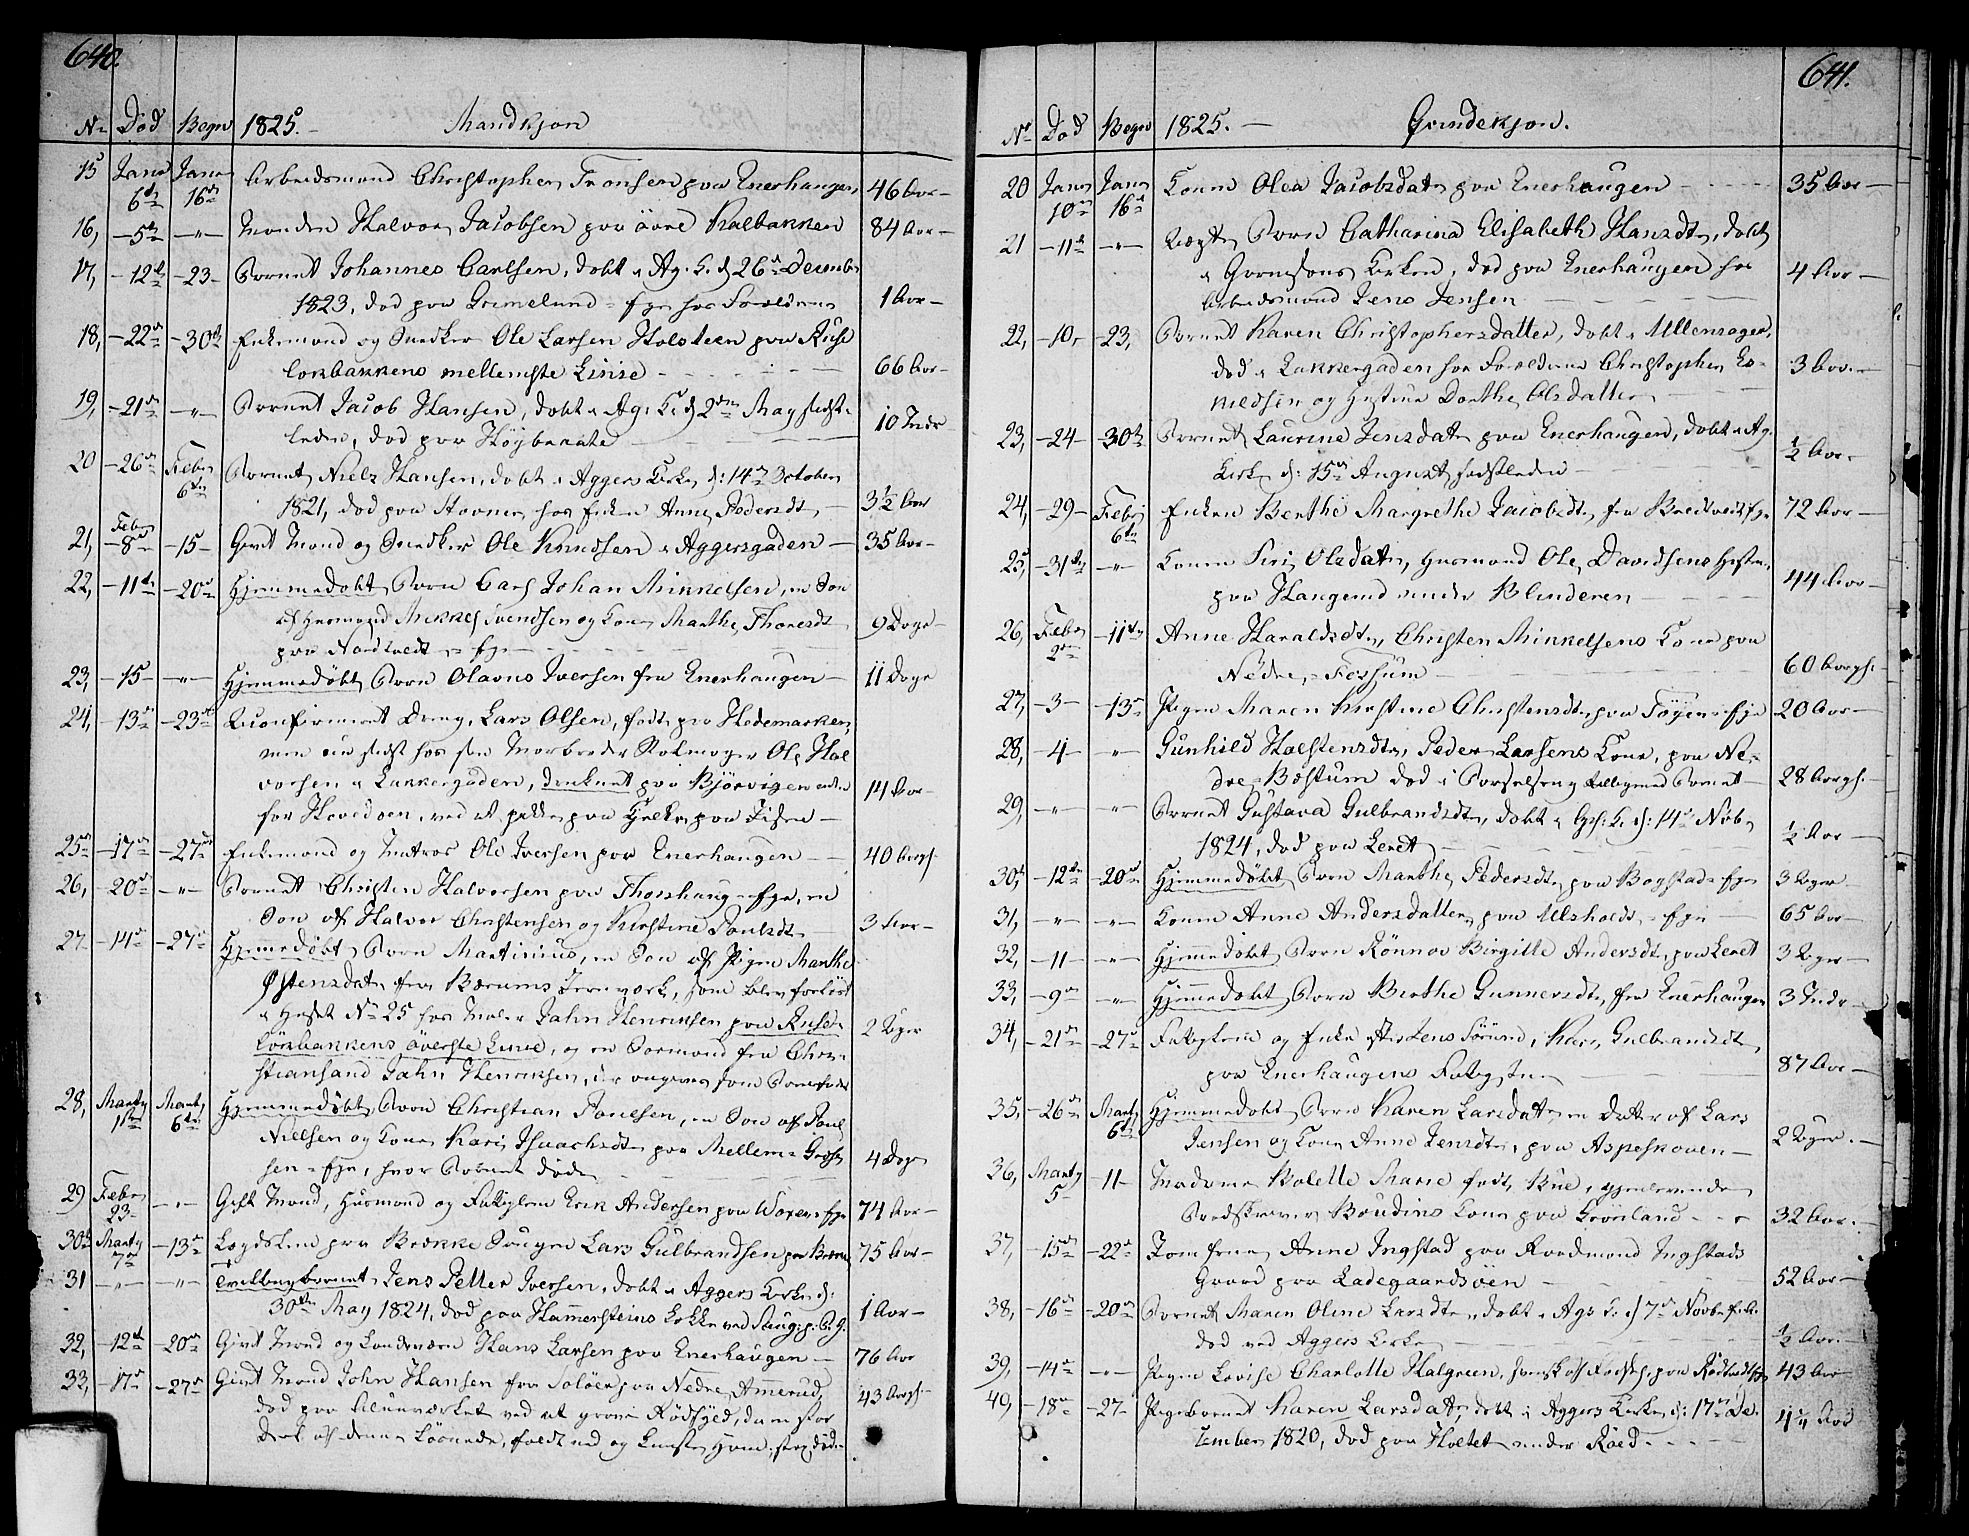 640.
No Död Begr 1825. Mandkjön
15 Janr 6te Janr 16de Arbeidsmand Christopher Fransen paa Enerhaugen, 46 Aar
16, 5te " Manden Halvor Jacobsen paa övre Kalbakken 84 Aar
17, 12te 23 Barnet Johannes Carlsen, döbt i Ag. K. d 26de Decembr
1823, död paa Grimelund Eje hos Forældrene 1 Aar
18, 22de 30te Enkemand og Snedker Ole Larsen Holsteen paa Ruse
lökbakkens mellemste Linie 66 Aar
19, 21de " Barnet Jacob Hansen, döbt i Ag. K. d 2den May sidst
leden, död paa Höybraate 10 Mdr
20 26de Febr 6te Barnet Niels Hansen, döbt i Aggers Kirke d: 14de October
1821, död paa Havnen hos Enken Anne Pedersdt 3½ Aar
21, Febr 8de 15 Givt Mand og Snedker Ole Knudsen i Aggersgaden 35 Aar
22, 11te 20de Hjemmedöbt Barn Carl Johan Mikkelsen, en Sön
af Husmand Mikkel Svendsen og Kone Marthe Thoresdt 9 Dage
paa Nordtvedt Eje
23, 15 " Hjemmedöbt Barn Olavus Iversen fra Enerhaugen 11 Dage
24, 13de 23de Uconfirmeret Dreng, Lars Olsen, födt paa Hedemarken,
men nu sidst hos sin Morbroder Ole Hal
vorsen i Lakkergaden, druknet paa Björvigen
for Hovedöen, ved at paa Isen 14 Aar
25de 17de 27de Enkemand og Matros Ole Iversen paa Enerhaugen 40 Aar gl.
26, 20de " Barnet Christen Halvorsen paa Thorshaug Eje, en
Sön af Halvor Christensen og Kirstine Paulsdt 3 Aar
27. 14de 27de Hjemmedöbt Barn Martinius, en Sön af Pigen Marthe
Östensdatr fra Bærums Jernværk, som blev forlöst
i Huset No 25 hos Maler Jahn Henriksen paa Ruse
lökbakkens överste Linie, og en Sömand fra Chri-
stiansand Jahn Henriksen, er angiven som Barnefader 2 Uger
28, Marty 1ste Marty 6te Hjemmedöbt Barn Christian Paulsen, en Sön af Paul
Nielsen og Kone Kari Isaachsdt paa Mellem Grefs
sen Eje, hvor Barnet döde 4 Dage
29 Febr 23 " Gift Mand, Husmand og Fatiglem Erik Andersen paa Voxen Eje 74 Aar
30te Marty 7de 13de Lægdslem paa Brække Brugen Lars Gulbrandsen paa Brække 75 Aar
31 " " Tvillingbarnet Jens Petter Iversen, döbt i Aggers Kirke d:
30te May 1824, död paa Hammersteins Lökke ved Saug. 1 Aar
32, 12te 20de Givt Mand og Landværn Hans Larsen paa Enerhaugen 76 Aar
33, 17de 27de Givt Mand John Hansen fra Solöer paa Nedre Ammerud,
död paa Alunværket ved at grave Rödfyld, da en stor
Deel af denne lösnede, faldt ud og knuste ham, strax död 43 Aar gl.
641.
No Död Begr 1825. Qvindekjön.
20 Janr 10de Janr 16de Konen Olea Jacobsdatr paa Enerhaugen 35 Aar
21 11te " Barn Catharina Elisabeth Hansdtr, döbt
i Garnisons Kirken, död paa Enerhaugen hos
Arbeidsmand Jens Jensen 4 Aar
22, 10, 23, Barnet Karen Christophersdatter, döbt i Ullensager,
död i Lakkergaden hos Forældrene Christopher Cor-
neliusen og Hustrue Dorthe Olsdatter 3 Aar
23, 24 30te Barnet Laurine Jensdatr paa Enerhaugen, döbt i Ag.
Kirke d: 15de August sidstleden ½ Aar
24, 29 Febr 6te Enken Berthe Margrethe Jacobsdtr fra Bredtvedt Eje 72 Aar
25, 31te " Konen Siri Olsdatr, Husmand Ole Davidsens Hustru,
paa Haugerud under Blinderen 44 Aar
26, Febr 2den 11te Anne Haraldsdtr, Christen Mikkelsens Kone paa
Nedre Fossum 60 Aar gl.
27, 3 13de Pigen Maren Kirstine Christensdtr paa Töyen Eje 20 Aar
28, 4 " Gunhild Halstensdtr, Peder Larsens Kone, paa Ne-
dre Bæstum död i Barselseng tilligemed Barnet 28 Aar gl.
29, " " Barnet Gustava Gulbrandsdtr, döbt i G. K. d: 14de Nobr
1824, död paa Leret ½ Aar
30te 12te 20de Hjemmedöbt Barn Marthe Pedersdtr paa Bogstad Eje 3 Uger
31, " " Konen Anne Andersdatter paa Ulsholdt Eje 65 Aar
32, 11 " Hjemmedöbt Barn Rönnov Birgitte Andersdt, paa Leret 3 Uger
33, 9de " Hjemmedöbt Barn Berthe Gunnersdtr fra Enerhaugen 3 Mdr
34, 21de 27de Fatiglem og Enke efter Jens Sörum, Kari Gulbrandsdt,
paa Enerhaugens Fatigstue 87 Aar
35, 26de Marty 6te Hjemmedöbt Barn Karen Larsdatr, en Datter af Lars
Jensen og Kone Anne Jensdtr, paa Aspeskoven 2 Uger
36, Marty 5 11 Madame Bolette Marie födt Bue, gjenlevende
Boudins Kone paa Grönland 32 Aar
37, 15de 22de Jomfrue Anne Ingstad paa Raadmand Ingstads
Gaard paa Ladegaardsöen 52 Aar
38, 16de 20de Barnet Maren Oline Larsdtr, döbt i Ags K. d 7de Novbr f.A.
död ved Aggers Kirke ½ Aar
39, 14de " Pigen Lovise Charlotte Halgreen, svensk af Födsel, paa Rödtvedt Eje 43 Aar
40, 18de 27 Pigebarnet Karen Larsdatr, döbt i Aggers Kirke d: 17de De-
zember 1820, död paa Holtet under Röed 4¼ Aar